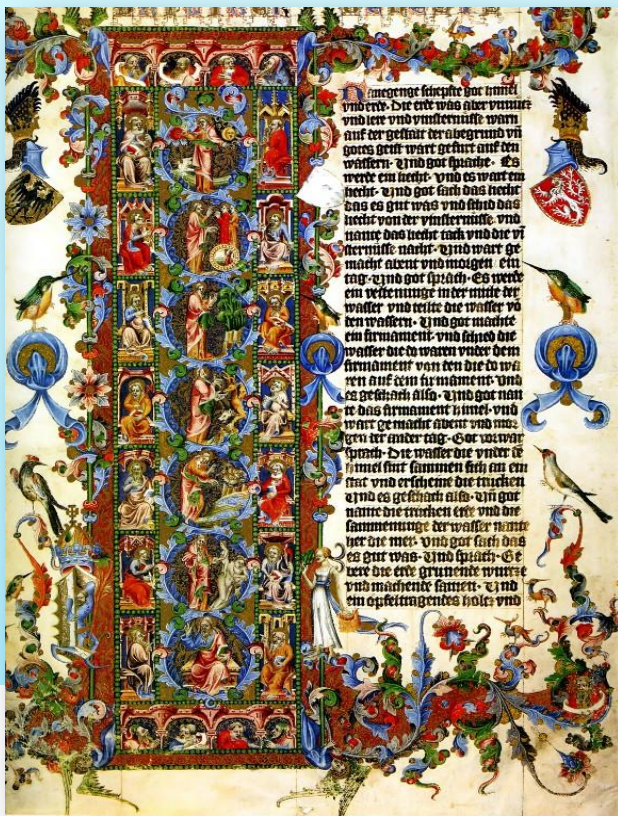 Anegenge schepfte got himel
vnd erde. Die erde was aber vnnucz
vnd lere vnd vinsternuͤsse warn
auf der gestalt der abegrund vn̄
gotes geist wart gefurt auf den
wassern. Vnd got sprache. Es
werde ein liecht. vnd es wart ein
liecht. Vnd got sach das liecht
das es gut was vnd schid das
liecht von der vinsternuͤsse. vnd
nante das liecht tack vnd die vi
sternuͤsse nacht. Vnd wart ge
macht abent vnd morgen ein
tag. Vnd got sprach. Es werde
ein vestenunge in der mitte der
wasser vnd teilte die wasser vō
den wassern. Vnd got machte
ein firmament. vnd schied die
wasser die do waren vnder dem
firmament von den die do wa
ren auf dem firmament. Vnd
es geschach also. Vnd got nan
te das firmament himel. vnd
wart gemacht abent vnd mor
gen der ander tag. Got vorwar
sprach. Die wasser die vnder dē
himel sint sammen sich an ein
stat vnd erscheine die trucken
Vnd es geschach also. Vn̄ got
nante die trucken erde vnd die
sammenunge der wasser nante
her die mer. vnd got sach das
es gut was. Vnd sprach. Ge
bere die erde grunende wurcze
vnd machende samen. Vnd
ein opfeltragendes holtz vnd